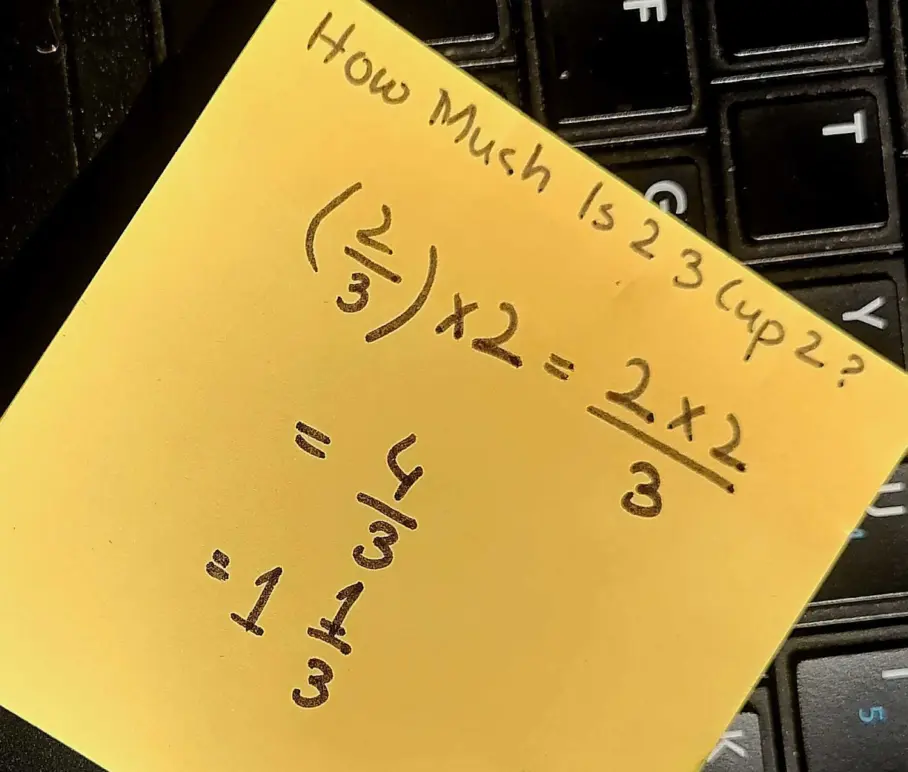 How Much Is 2 3 Cup 2?
(2/3) x 2 = 2 x 2/3
= 4/3
= 1 1/3
F
T
G
Y
U
5
K